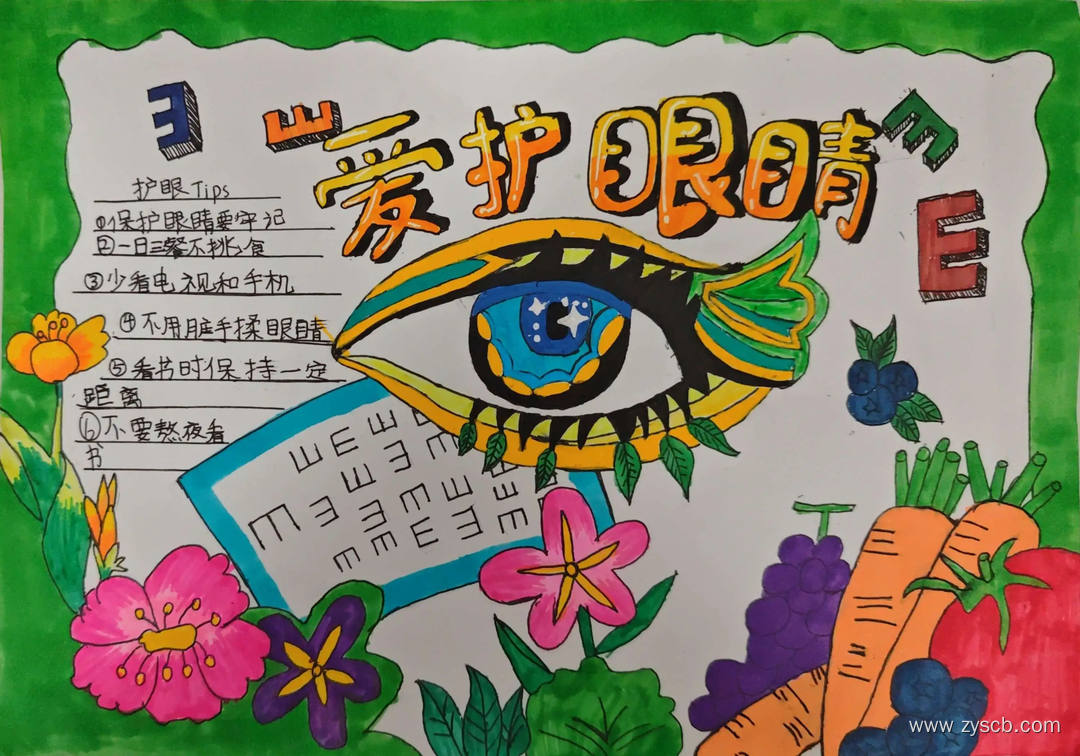 爱护眼睛
护眼Tips
①保护眼睛要牢记
②一日三餐不挑食
③少看电视和手机
④不用脏手揉眼睛
⑤看书时保持一定
距离
⑥不要熬夜看
书
E
E
E
E
www.zyscb.com